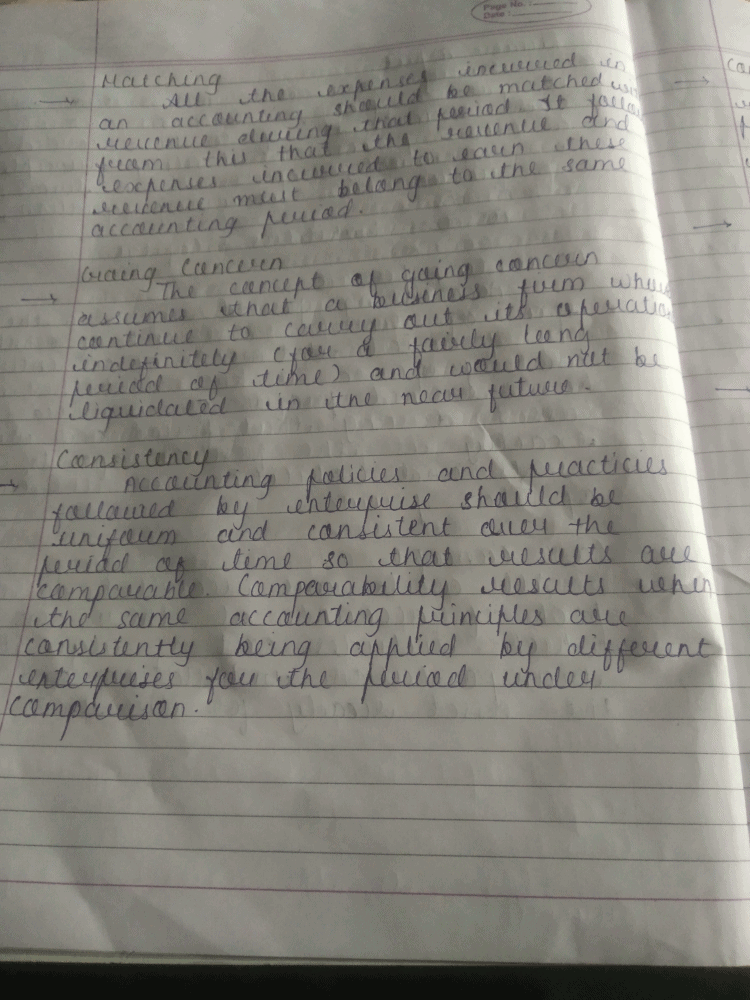 Page No.
Date :
Matching
→ All the expenses incurred in
an accounting should be matched
revenue during that period It
from this that the revenue and
expenses incurred to earn these
revenue must belong to the same
accounting period.
Going Concern
→ The concept of going concern
assumes that a business firm
continue to carry out its
indefinitely (for a fairly long
period of time) and would not be
liquidated in the near future.
Consistency
→ Accounting policies and practicies
followed by enterprise should be
uniform and consistent over the
period of time so that results are
comparable. Comparability results when
the same accounting principles are
consistently being applied by different
enterprises for the period under
comparison.